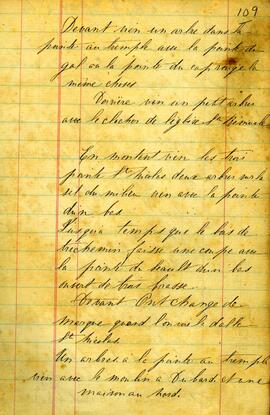 109
Devant vien un arbre dans la
pointe au temple avec la pointe du
gal ou la pointe du cap rouge la
même chose
Derière vien un petit arbre
avec le clochon de l'église St
En montent vien les trois
pointe St Nicolas deux arbres sur le
sel du milieu vien avec la pointe
d'un bas
Jusqua temps que le bas de
fasse une coupe avec
la pointe du d'un bas
ouest de trois brasse
Devant On Change de
marque quand l'on va le dalle
St Nicolas
Un arbres a la pointe au temple
vien avec le moulin a Dubord et une
maison au Nord.